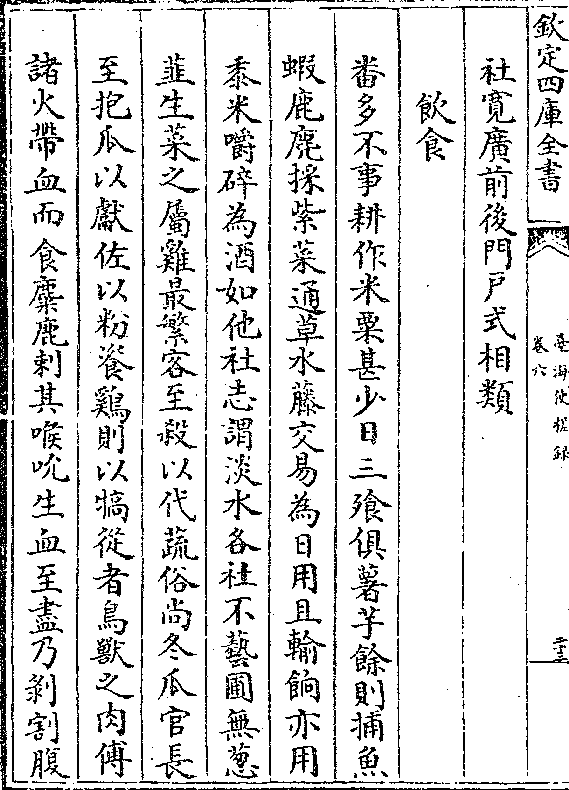 欽定四庫全書
臺海使槎録
卷六
二十三
社寛廣前後門戸式相類
飲食
番多不事耕作米粟甚少日三飱俱薯芋餘則捕魚
蝦鹿麂採紫菜通草水藤交易為日用且輸餉亦用
黍米嚼碎為酒如他社志謂淡水各社不藝圃無葱
韮生菜之屬雞最繁客至殺以代蔬俗尚冬瓜官長
至抱瓜以獻佐以粉餈鷄則以犒從者鳥獸之肉傅
諸火帶血而食麋鹿刺其喉吮生血至盡乃剝割腹